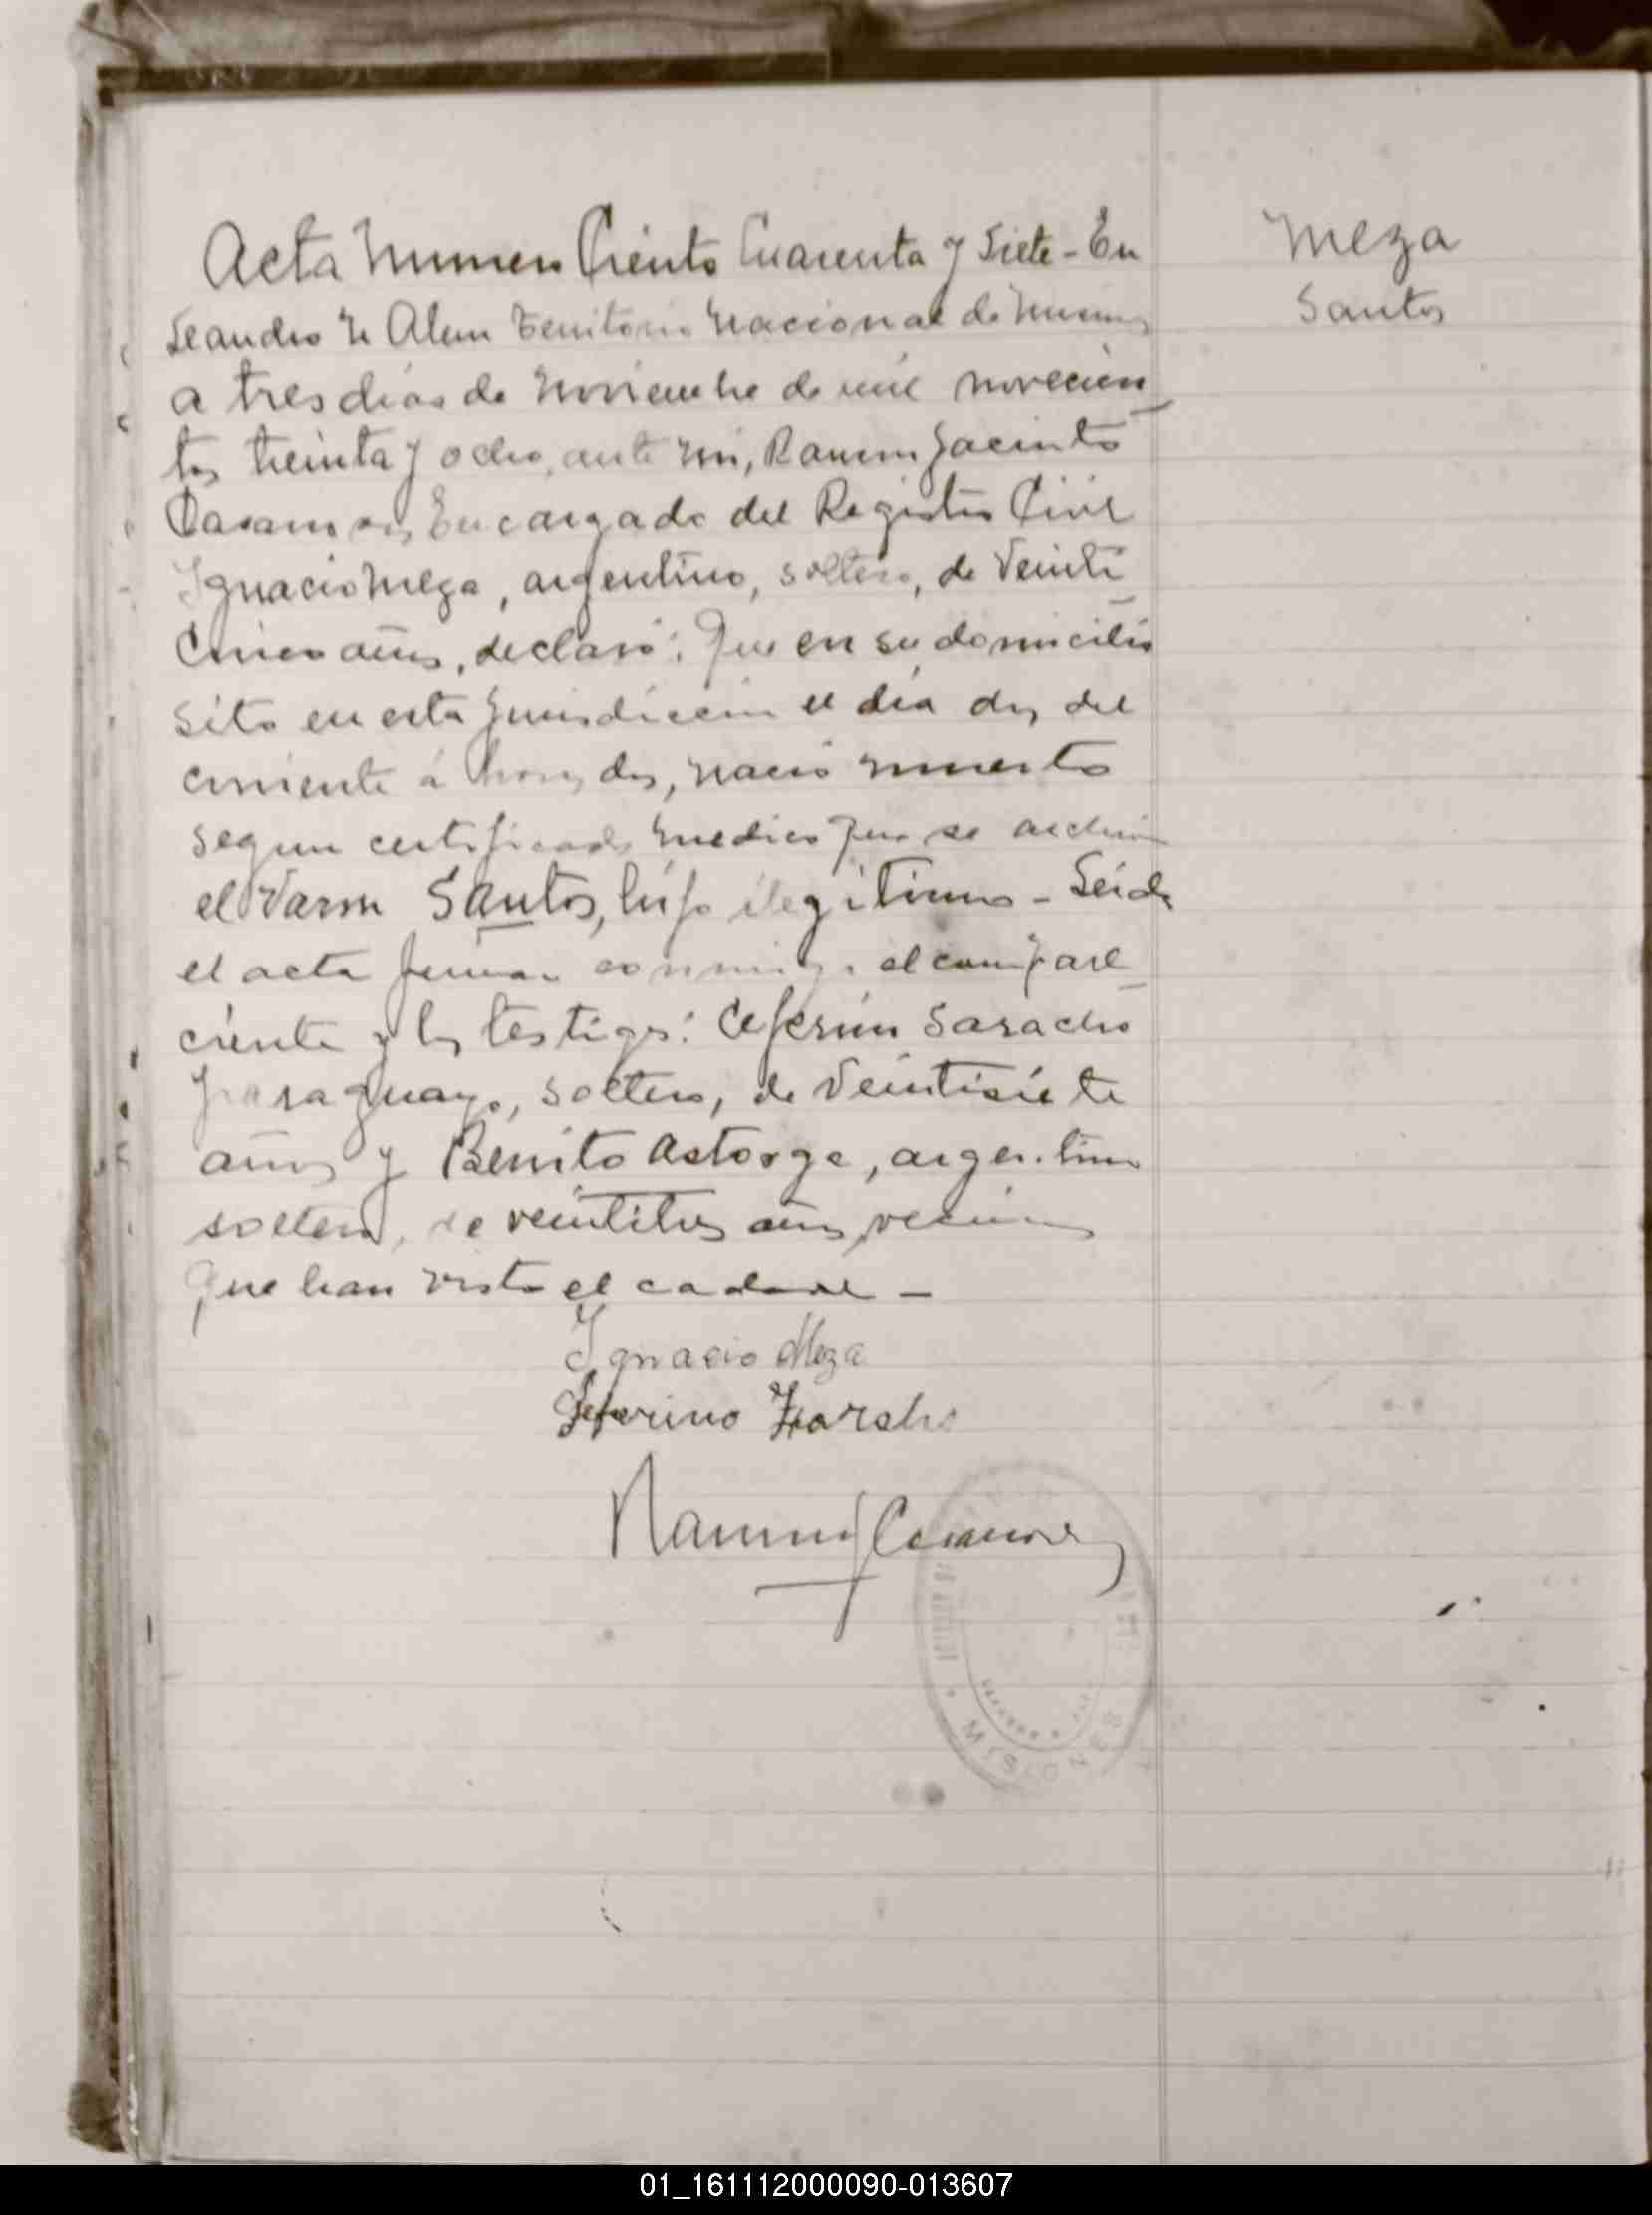 Acta Numero Ciento Cuarenta y Siete - En
Leandro N Alem Territorio Nacional de Misiones
a tres dias de Noviembre de mil novecien
tos treinta y ocho, ante mi, Ramon Jacinto
Casamor, Encargado del Registro Civil
Ignacio Meza, argentino, soltero, de Veinti
Cinco años, declaró: Que en su domicilio
sito en esta Jurisdiccion el dia dos del
corriente á horas dos, nació muerto
segun certificado medico que se archiva
el Varon Santos, hijo ilegitimo - Leida
el acta firman conmigo el compare
ciente y los testigos: Ceferino Saracho
paraguayo, soltero, de Veintisiete
años y Benito Astorga, argentino
soltero, de veintitres años, vecinos
que han visto el cadaver -
Ignacio Meza
Seferino Zaracho
Ramon J Casamor
MISIONES
Meza
Santos
01_161112000090-013607